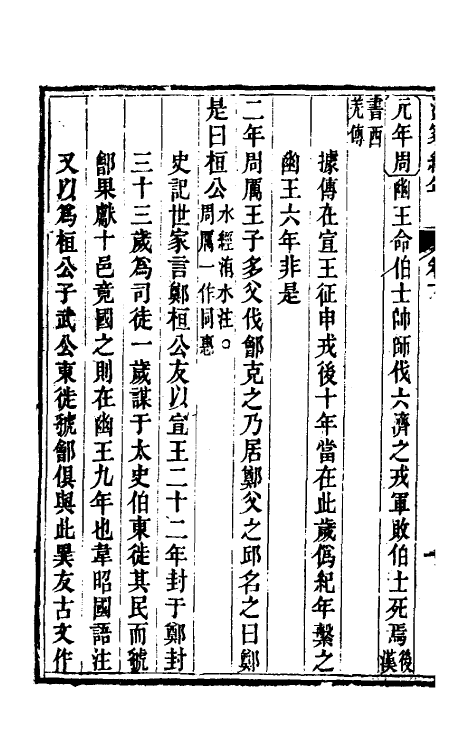 元年周幽王命伯士帥師伐六濟之戎軍敗伯士死焉後漢
書西羌傳
據傳在宣王征申戎後十年當在此歲僞紀年繫之
幽王六年非是
二年周厲王子多父伐鄶克之乃居鄭父之邱名之曰鄭
是曰桓公水經洧水注○周厲一作同惠
史記世家言鄭桓公友以宣王二十二年封于鄭封
三十三歲爲司徒一歲謀于太史伯東徙其民而虢
鄶果獻十邑竟國之則在幽王九年也韋昭國語注
又以爲桓公子武公東徙虢鄶俱與此異友古文作